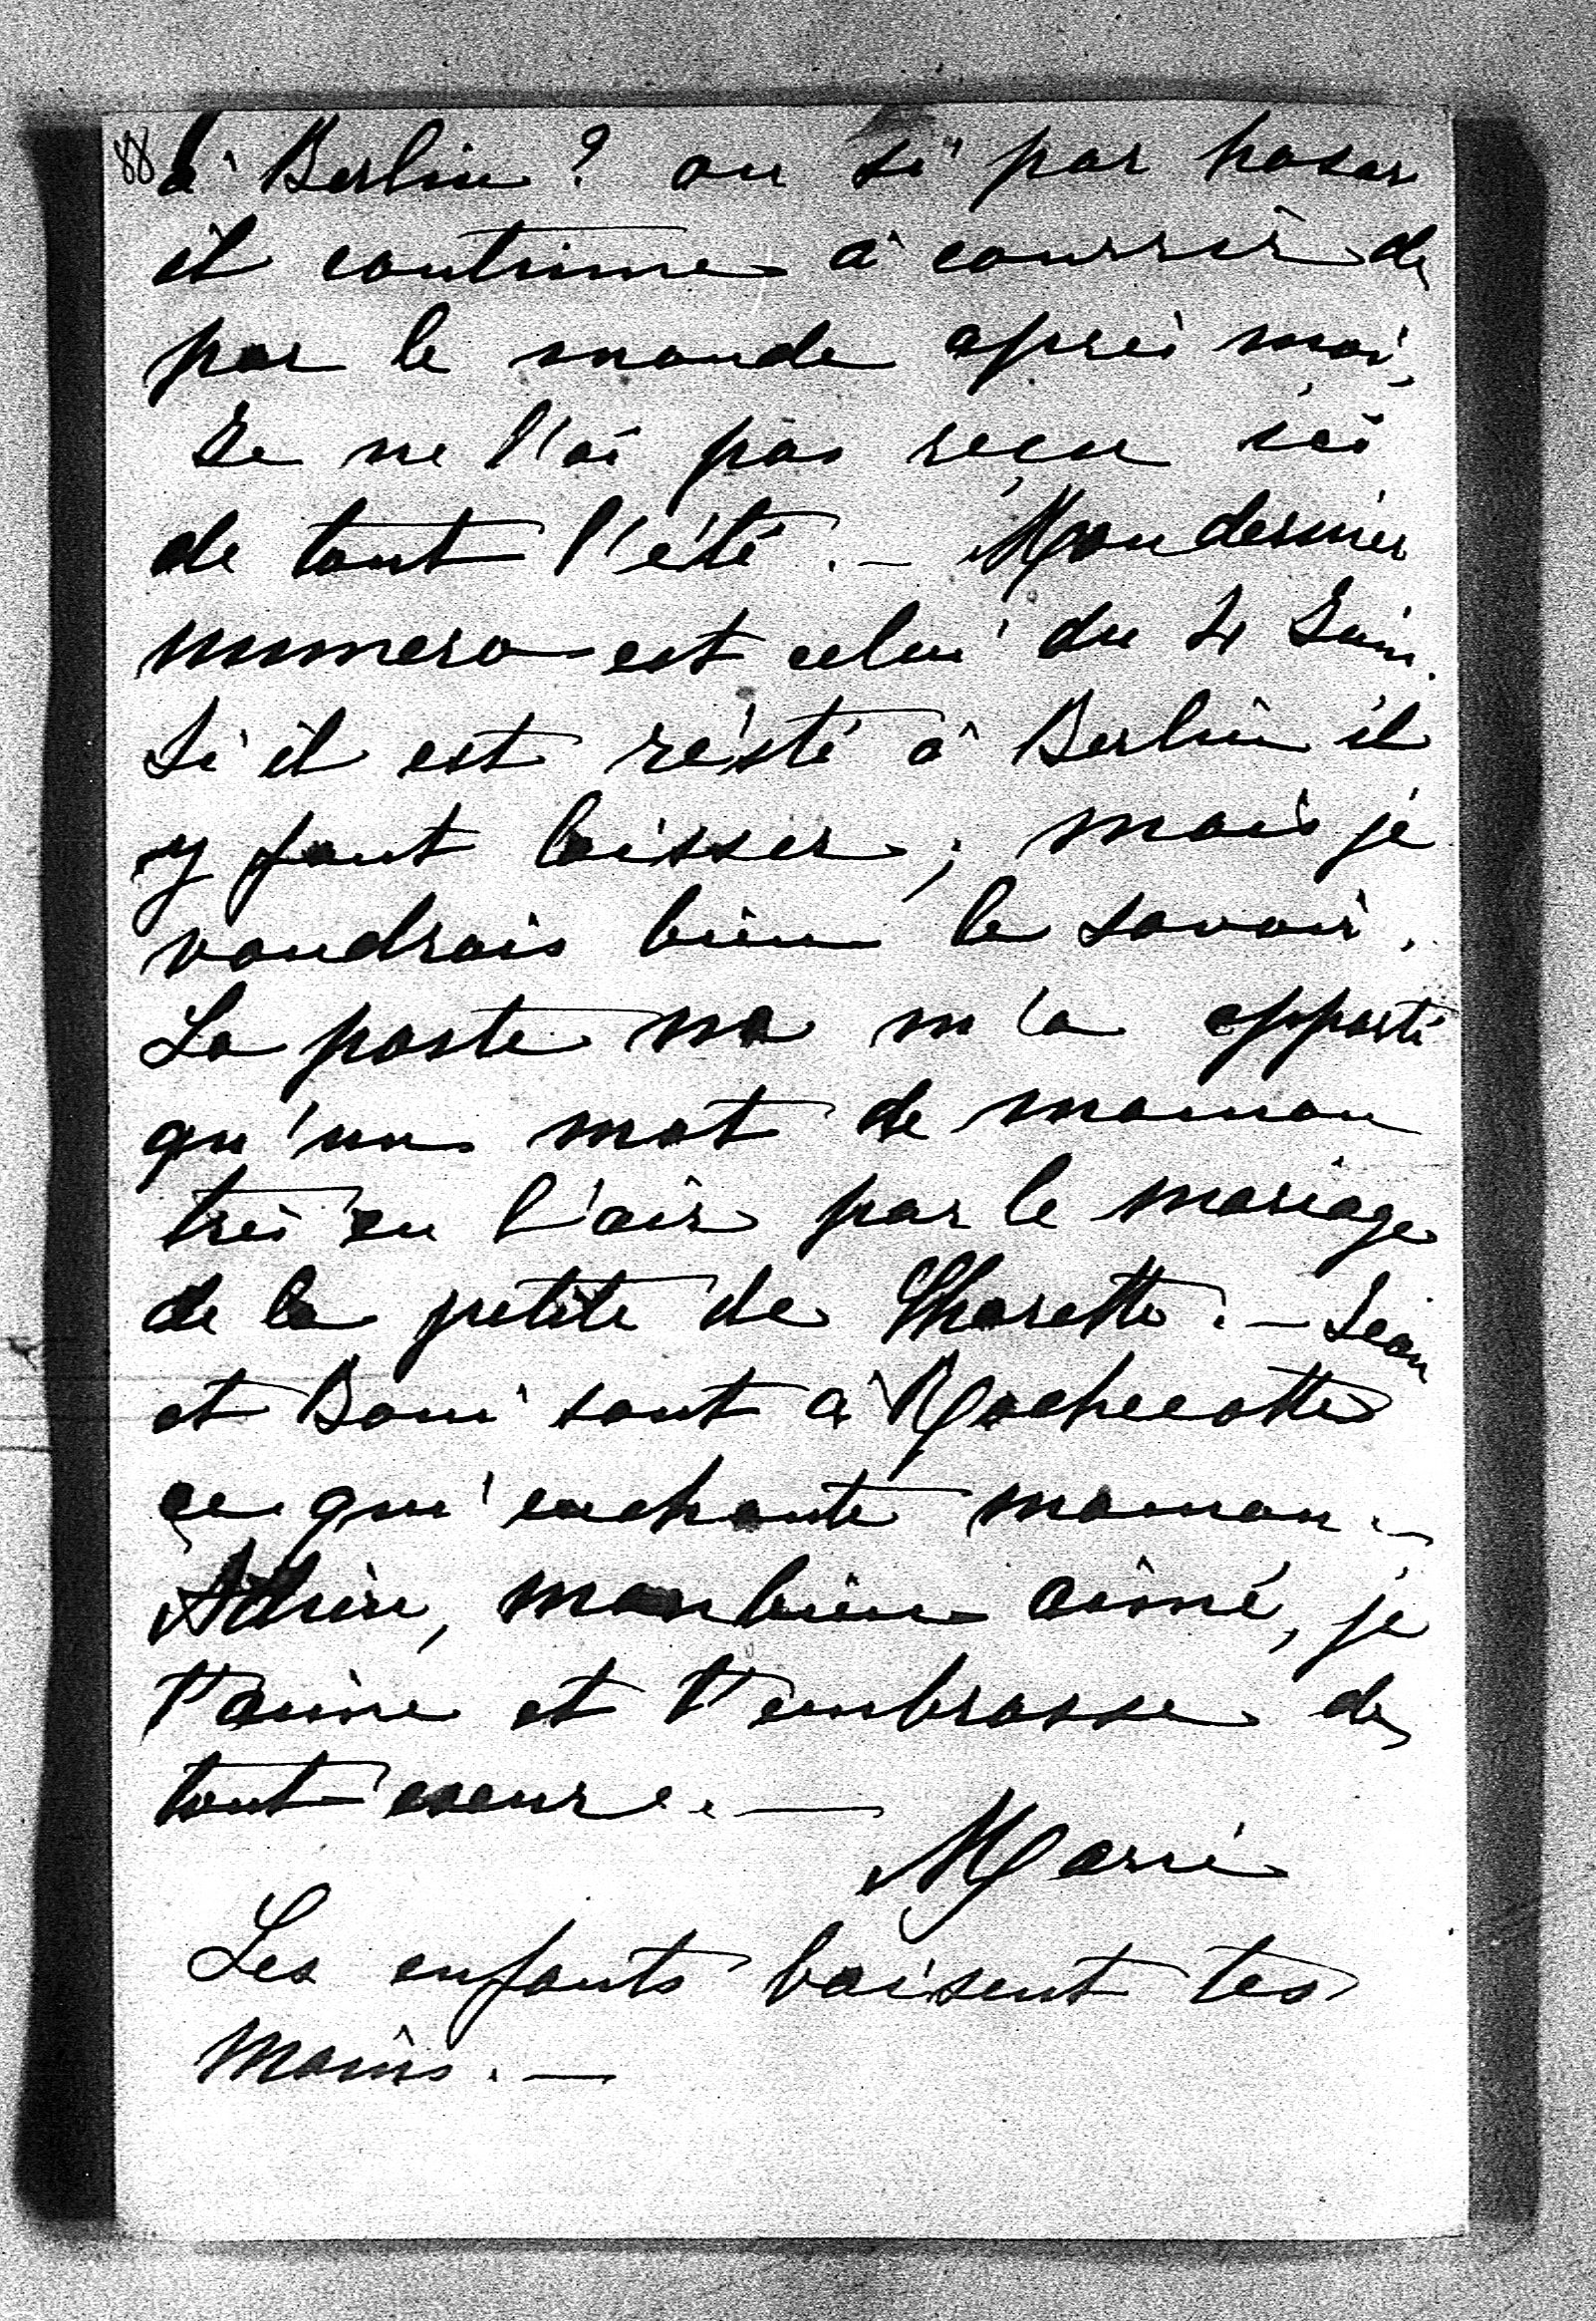 88 à Berlin ? ou si par hasar
il continue à courrir de
par le monde après moi,
Je ne l'ai pas reçu ici
de tout l'été. — Mon dernier
numero est celui du 4 Juin.
Si il est résté à Berlin il
y faut laisser ; mais je
voudrais bien le savoir.
La poste ne m'a apporté
qu'un mot de maman
très en l'air par le mariage
de la petite de Charette. — Jean
et Boni sont à Rochecotte
ce qui enchante maman. —
Adieu, mon bien aimé, je
t'aime et t'embrasse de
tout coeur. —
Marie
Les enfants baisent tes
mains. —